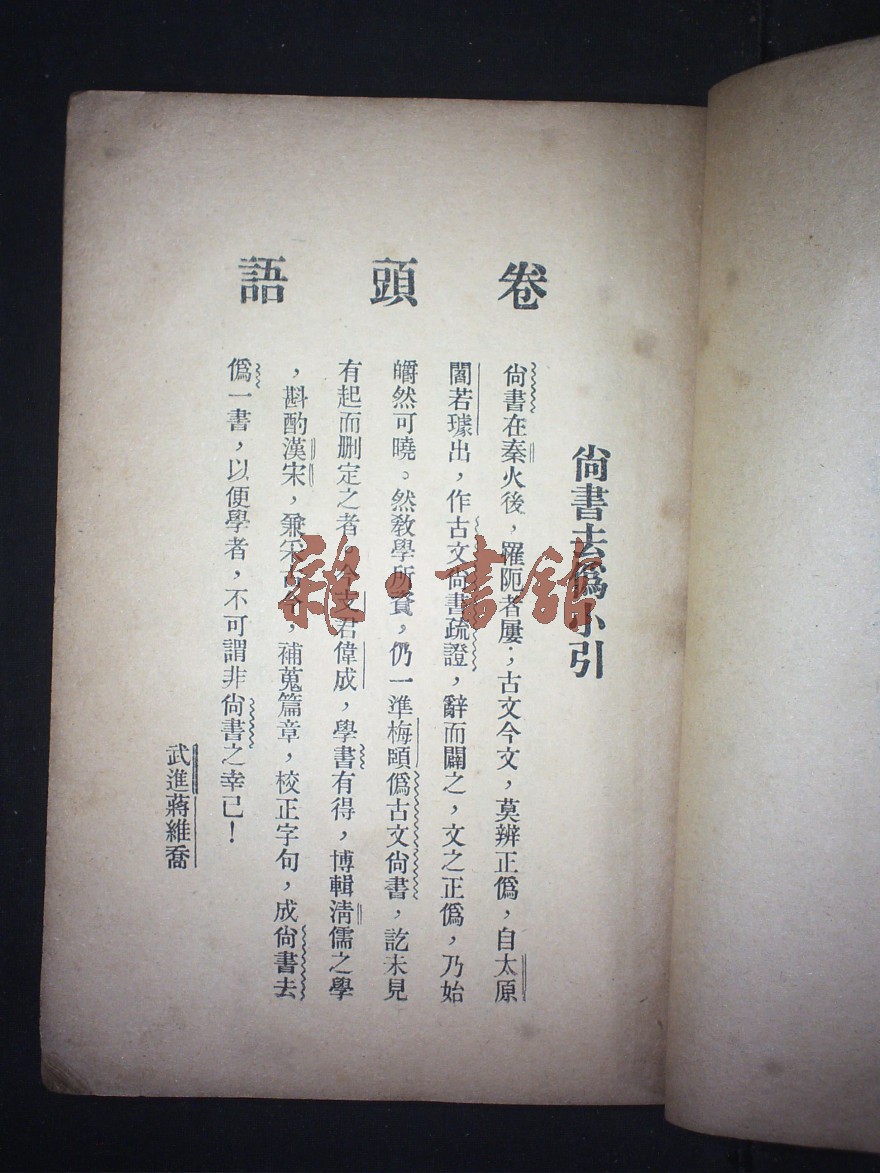 卷頭語
尙書去僞小引
尙書在秦火後，羅阨者屢；古文今文，莫辨正僞，自太原
閻若璩出，作古文尙書疏證，辭而闢之，文之正僞，乃始
皭然可曉。然敎學所資，仍一準梅頤僞古文尙書，訖未見
有起而删定之者，今支君偉成，學書有得，博輯淸儒之學
，斟酌漢宋，兼采古今，補蒐篇章，校正字句，成尙書去
僞一書，以便學者，不可謂非尙書之幸已！
武進蔣維喬
雜·書館